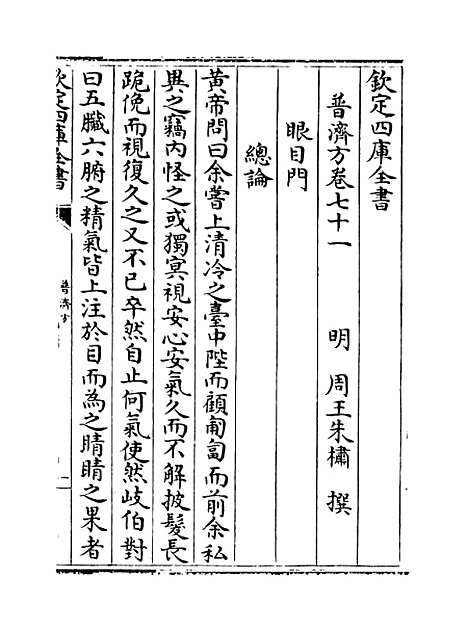 欽定四庫全書
普濟方卷七十一
明 周王朱橚 撰
眼目門
總論
黄帝問曰余嘗上清冷之臺中陛而顧匍匐而前余私
異之竊内怪之或獨㝠視安心安氣久而不解披髮長
跪俛而視復久之又不已卒然自止何氣使然岐伯對
曰五臟六腑之精氣皆上注於目而為之睛睛之果者
欽定四庫全書
普濟方